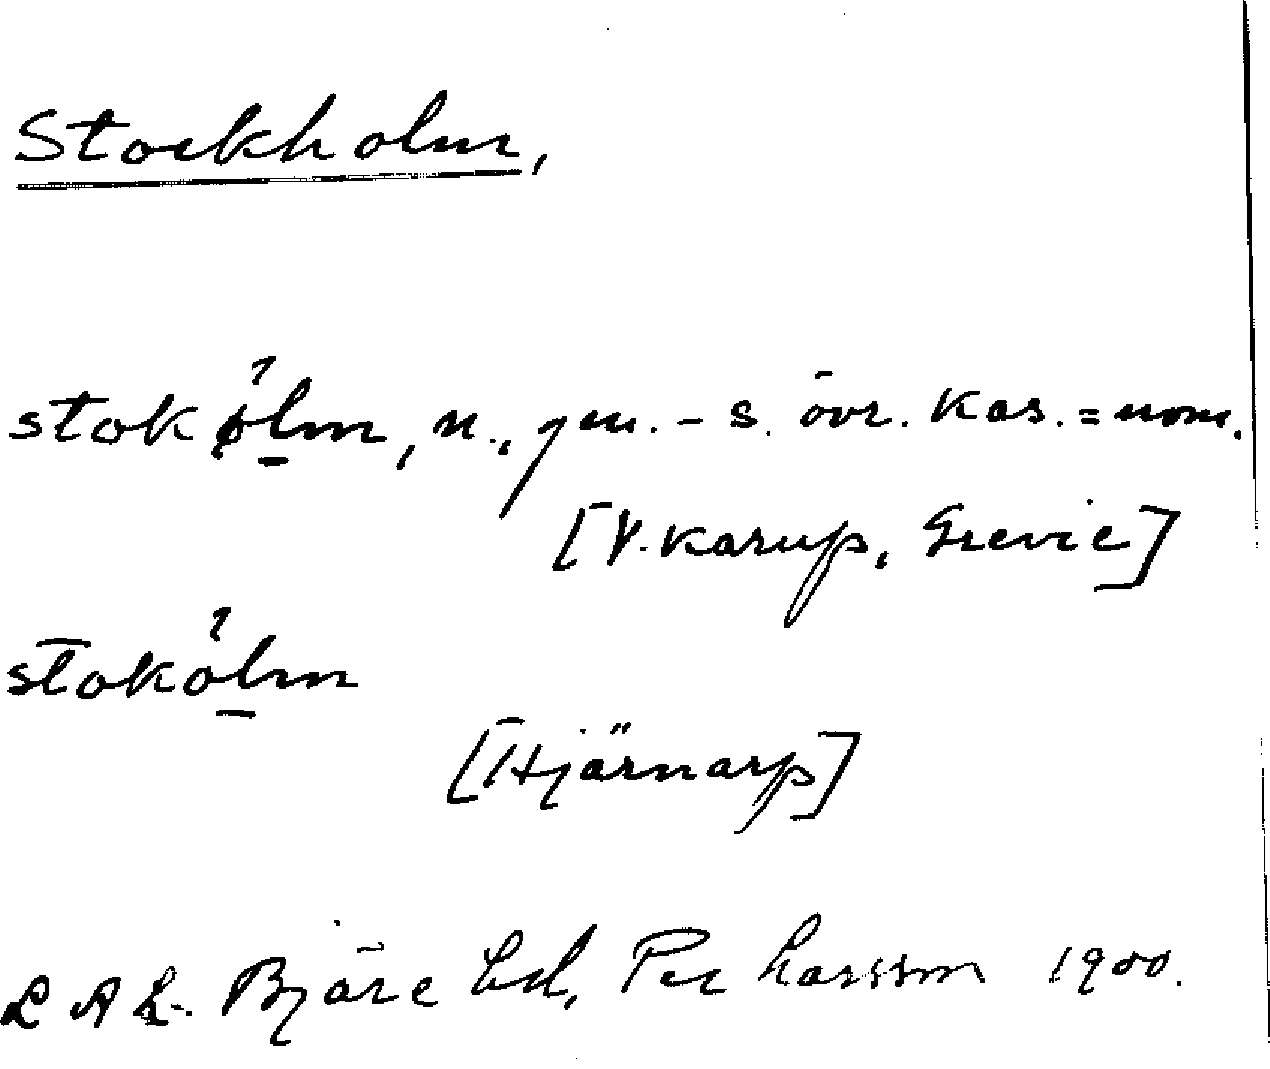 Stockholm,
stokølm, n., gen. - s. övr. kas. = nom.
[V. Karup, Grevie]
stokölm
[Hjärnarp]
L A L. Bjäre hd, Per Larsson 1900.